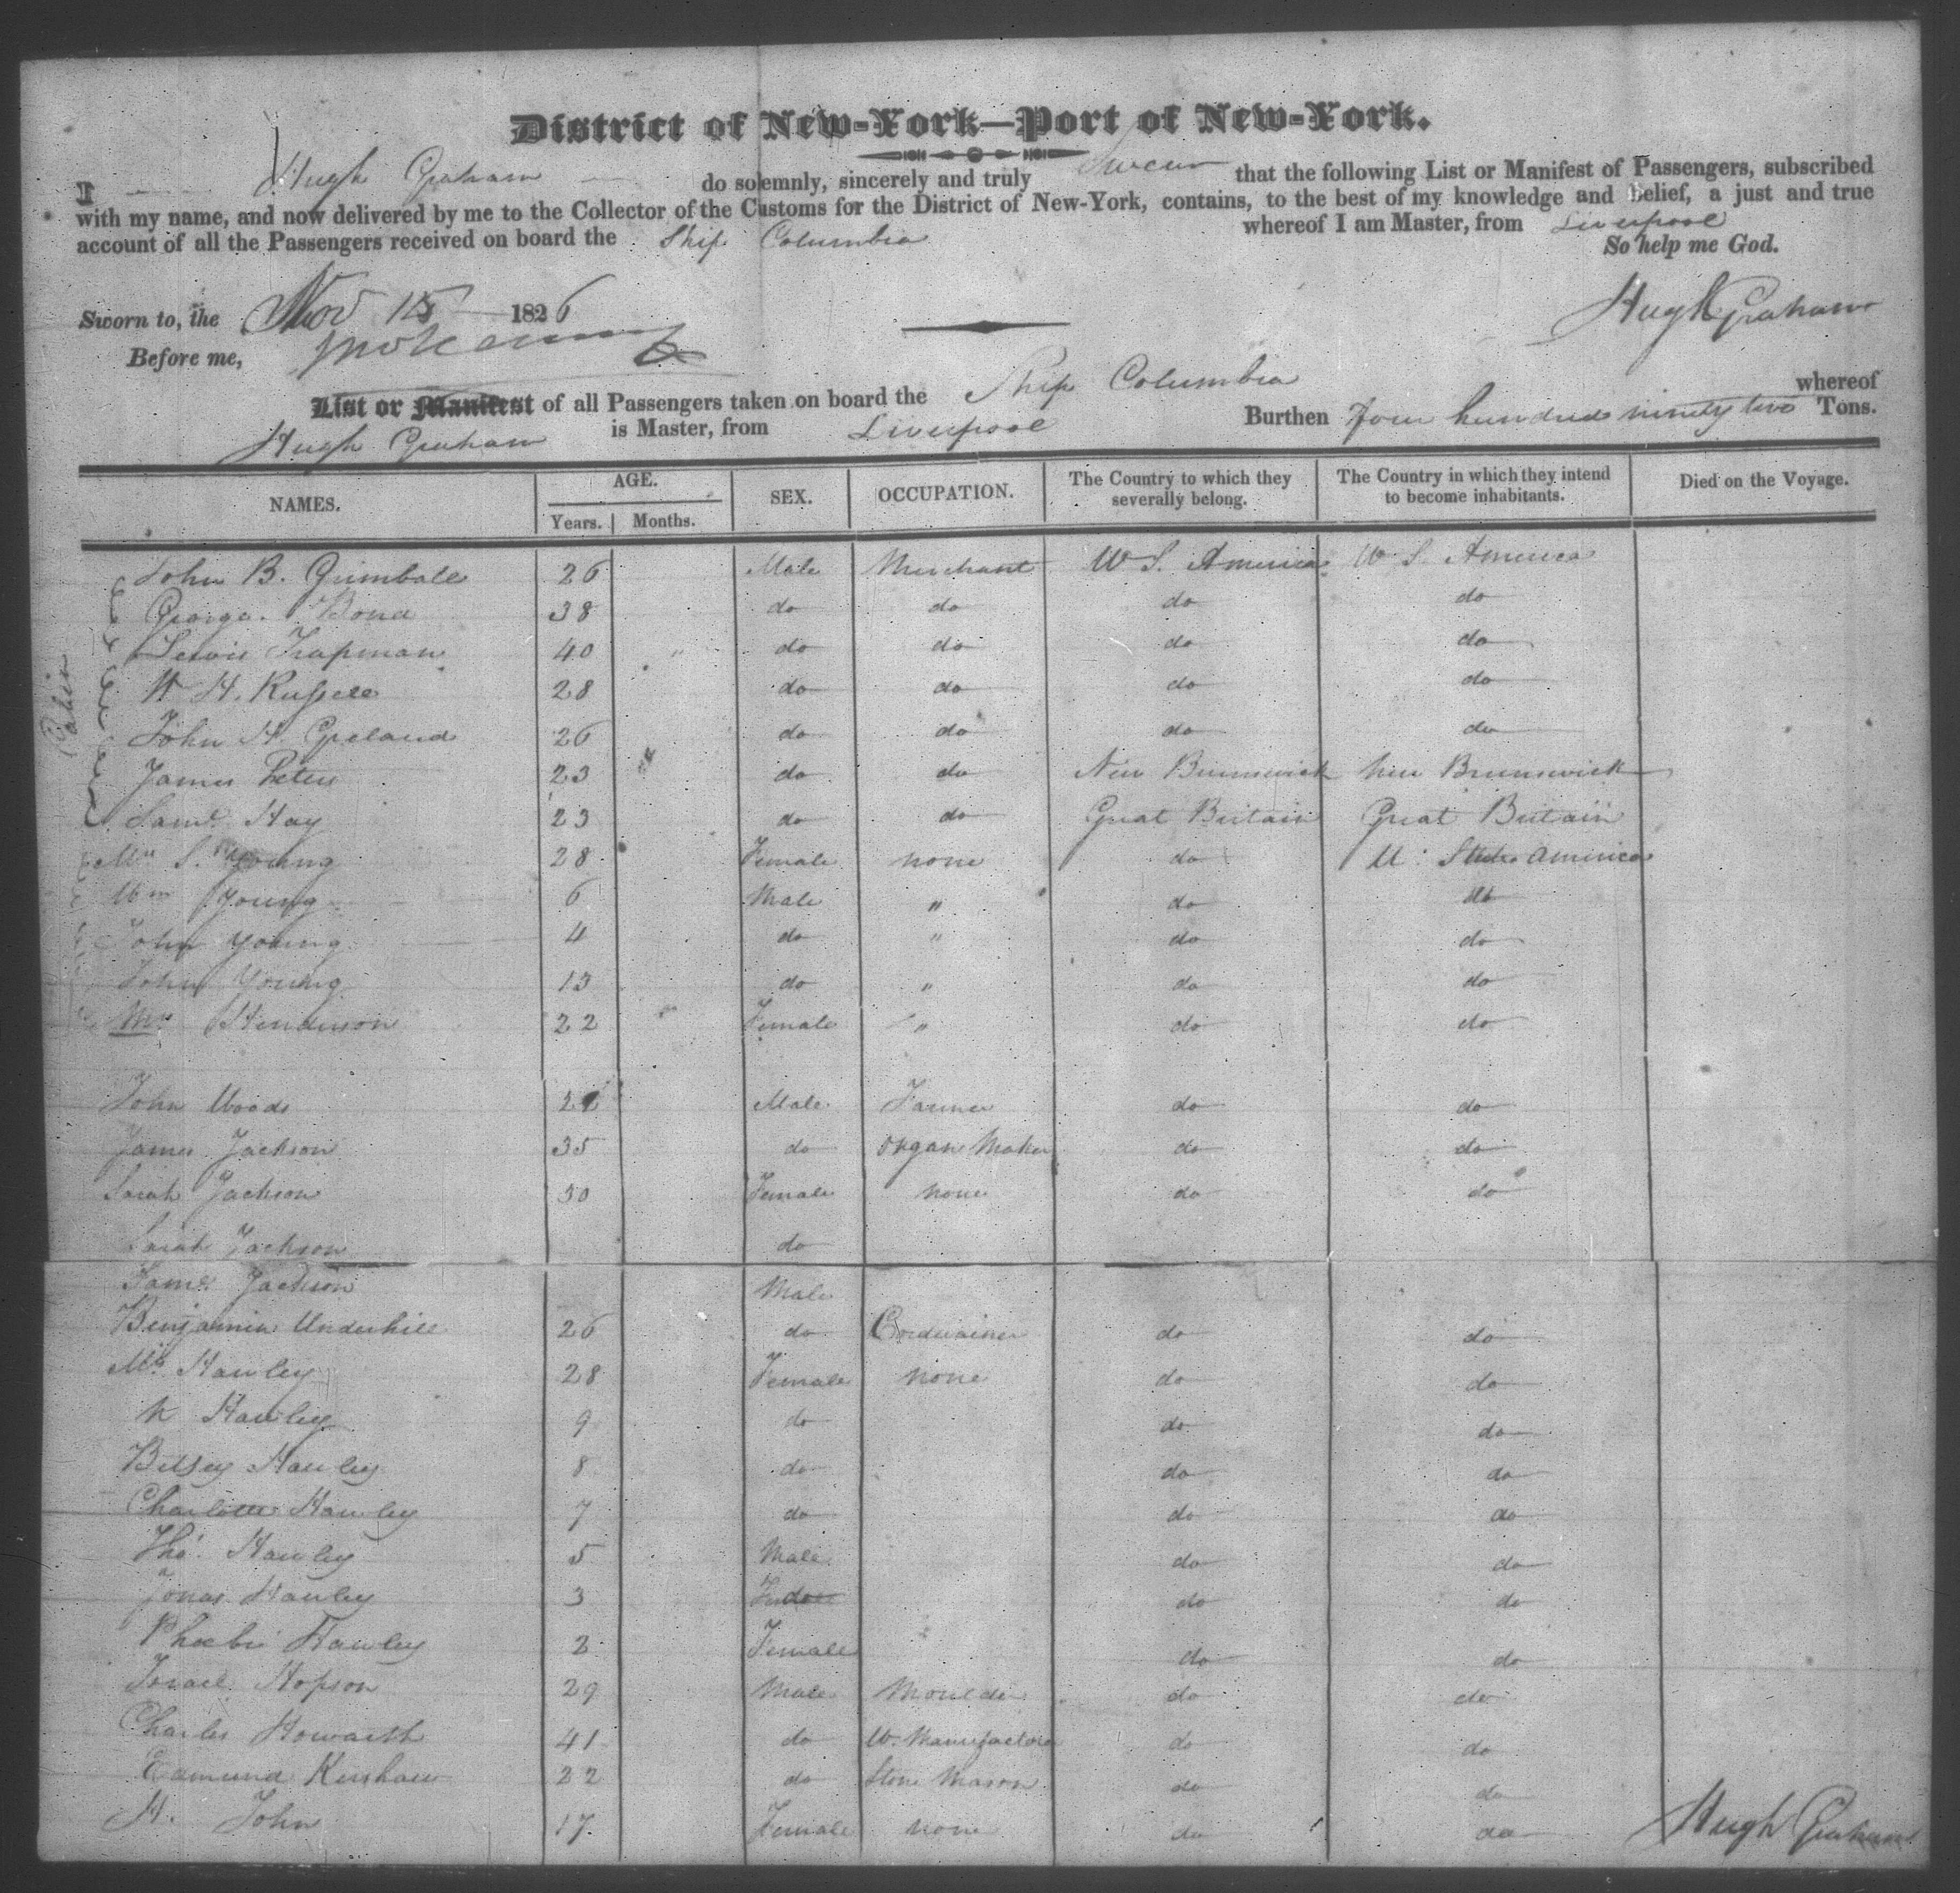 District of New-York—Port of New-York.
I Hugh Graham do solemnly, sincerely and truly Swear that the following List or Manifest of Passengers, subscribed
with my name, and now delivered by me to the Collector of the Customs for the District of New-York, contains, to the best of my knowledge and belief, a just and true
account of all the Passengers received on board the Ship Columbia whereof I am Master, from Liverpool
So help me God.
Sworn to, the Nov 15 1826
Hugh Graham
Before me,
List or Manifest of all Passengers taken on board the Ship Columbia whereof
Hugh Graham is Master, from Liverpool Burthen Four hundred ninety two Tons.
NAMES. AGE. Years. Months. SEX. OCCUPATION. The Country to which they severally belong. The Country in which they intend to become inhabitants. Died on the Voyage.
Cabin
John B. Grimball 26 Male Merchant U S. America U S. America
George Bond 38 do do do do
Lewis Trapman 40 " do do do do
W H. Russell 28 do do do do
John H. 26 do do do do
James Peters 23 do do New Brunswick New Brunswick
Saml. Hay 23 do do Great Britain Great Britain
Mrs S. Young 28 Female none do U. States America
Wm Young 6 Male " do do
John Young 4 do " do do
John Young 13 do " do do
Mrs Henderson 22 Female " do do
John Woods Male Farmer do do
James Jackson 35 do Organ Maker do do
Sarah Jackson 30 Female none do do
Sarah Jackson do
Jackson Male
Benjamin Underhill 26 do Cordwainer do do
Mrs. Hawley 28 Female none do do
Hawley 9 do do do
Betsey Hawley 8 do do do
Charlotte Hawley 7 do do do
Tho. Hawley 5 Male do do
Jonas Hawley 3 do do do
Phoebe Hawley 2 Female do do
Israel Hopson 29 Male Moulder do do
Charles Howarth 41 do W. Manufacturer do do
Edmund Kershaw 22 do Stone Mason do do
H. John 17 Female none do do
Hugh Graham